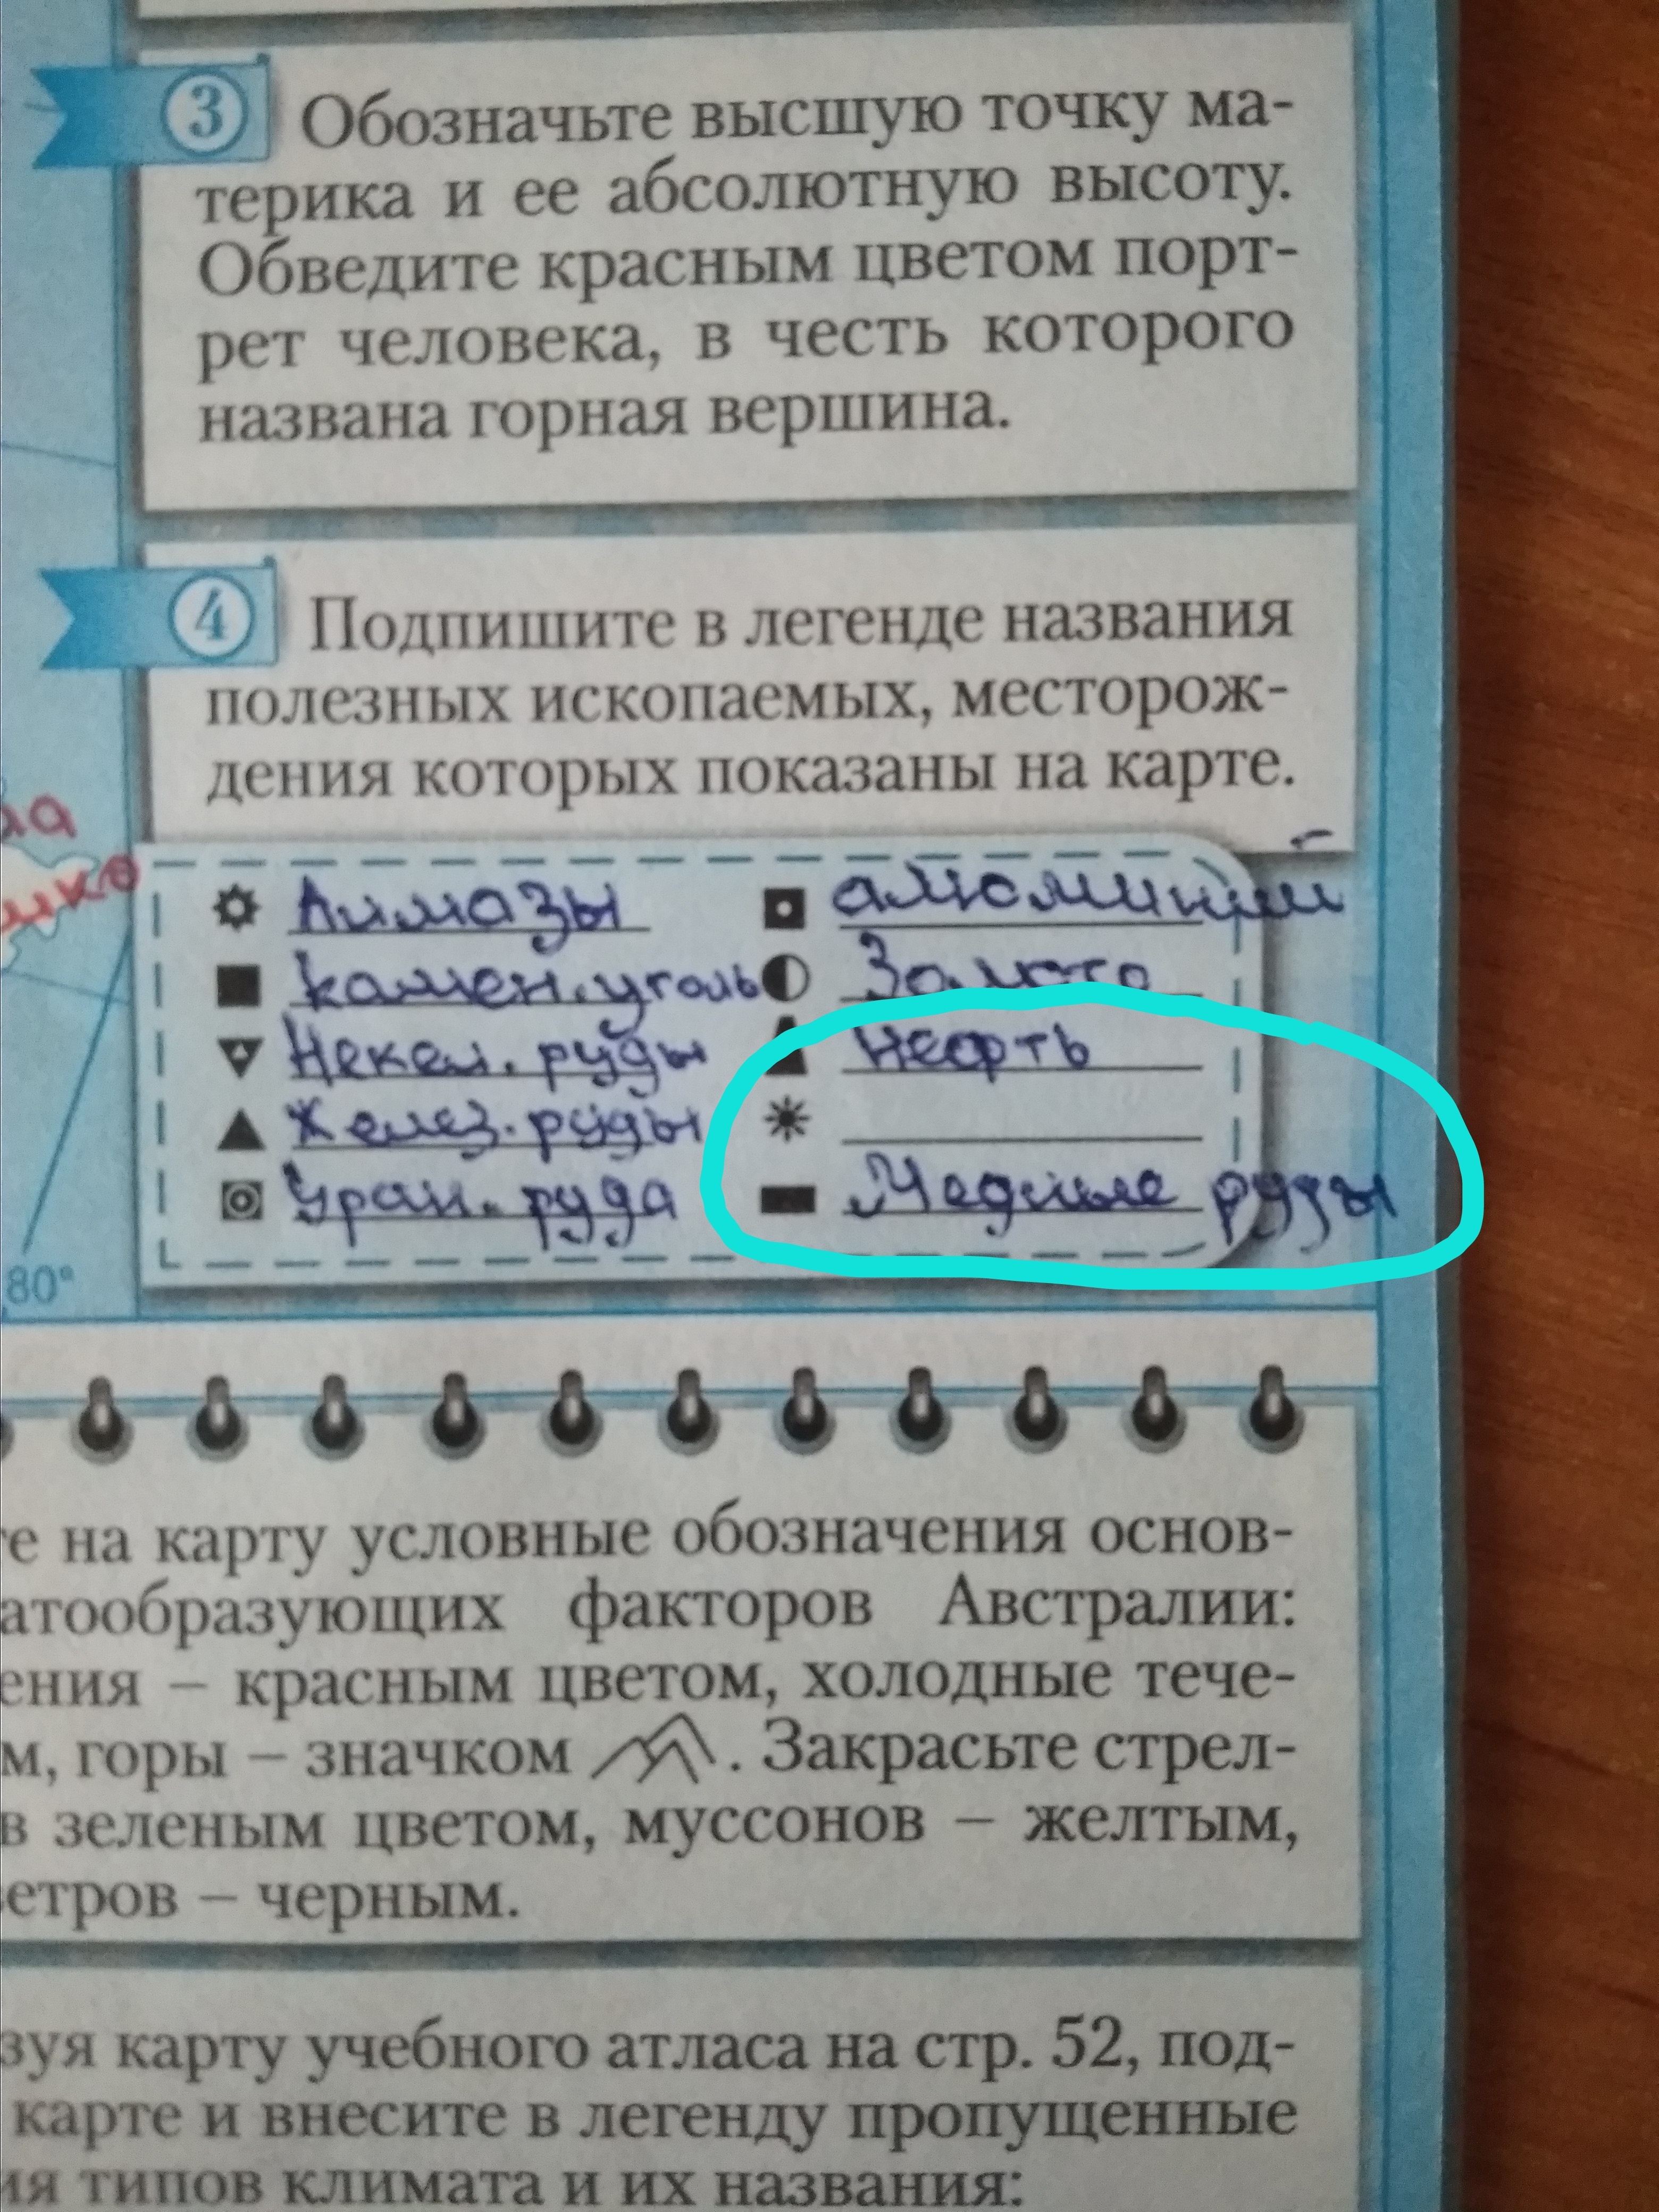 3 Обозначьте высшую точку ма-
терика и ее абсолютную высоту.
Обведите красным цветом порт-
рет человека, в честь которого
названа горная вершина.
4 Подпишите в легенде названия
полезных ископаемых, месторож-
дения которых показаны на карте.
Алмазы
алюминий
камен. уголь
Золото
Некел. руды
Нефть
Желез. руды
Уран. руда
Медные руды
80°
те на карту условные обозначения основ-
атообразующих факторов Австралии:
ения – красным цветом, холодные тече-
м, горы – значком . Закрасьте стрел-
в зеленым цветом, муссонов – желтым,
ветров – черным.
зуя карту учебного атласа на стр. 52, под-
карте и внесите в легенду пропущенные
ия типов климата и их названия: